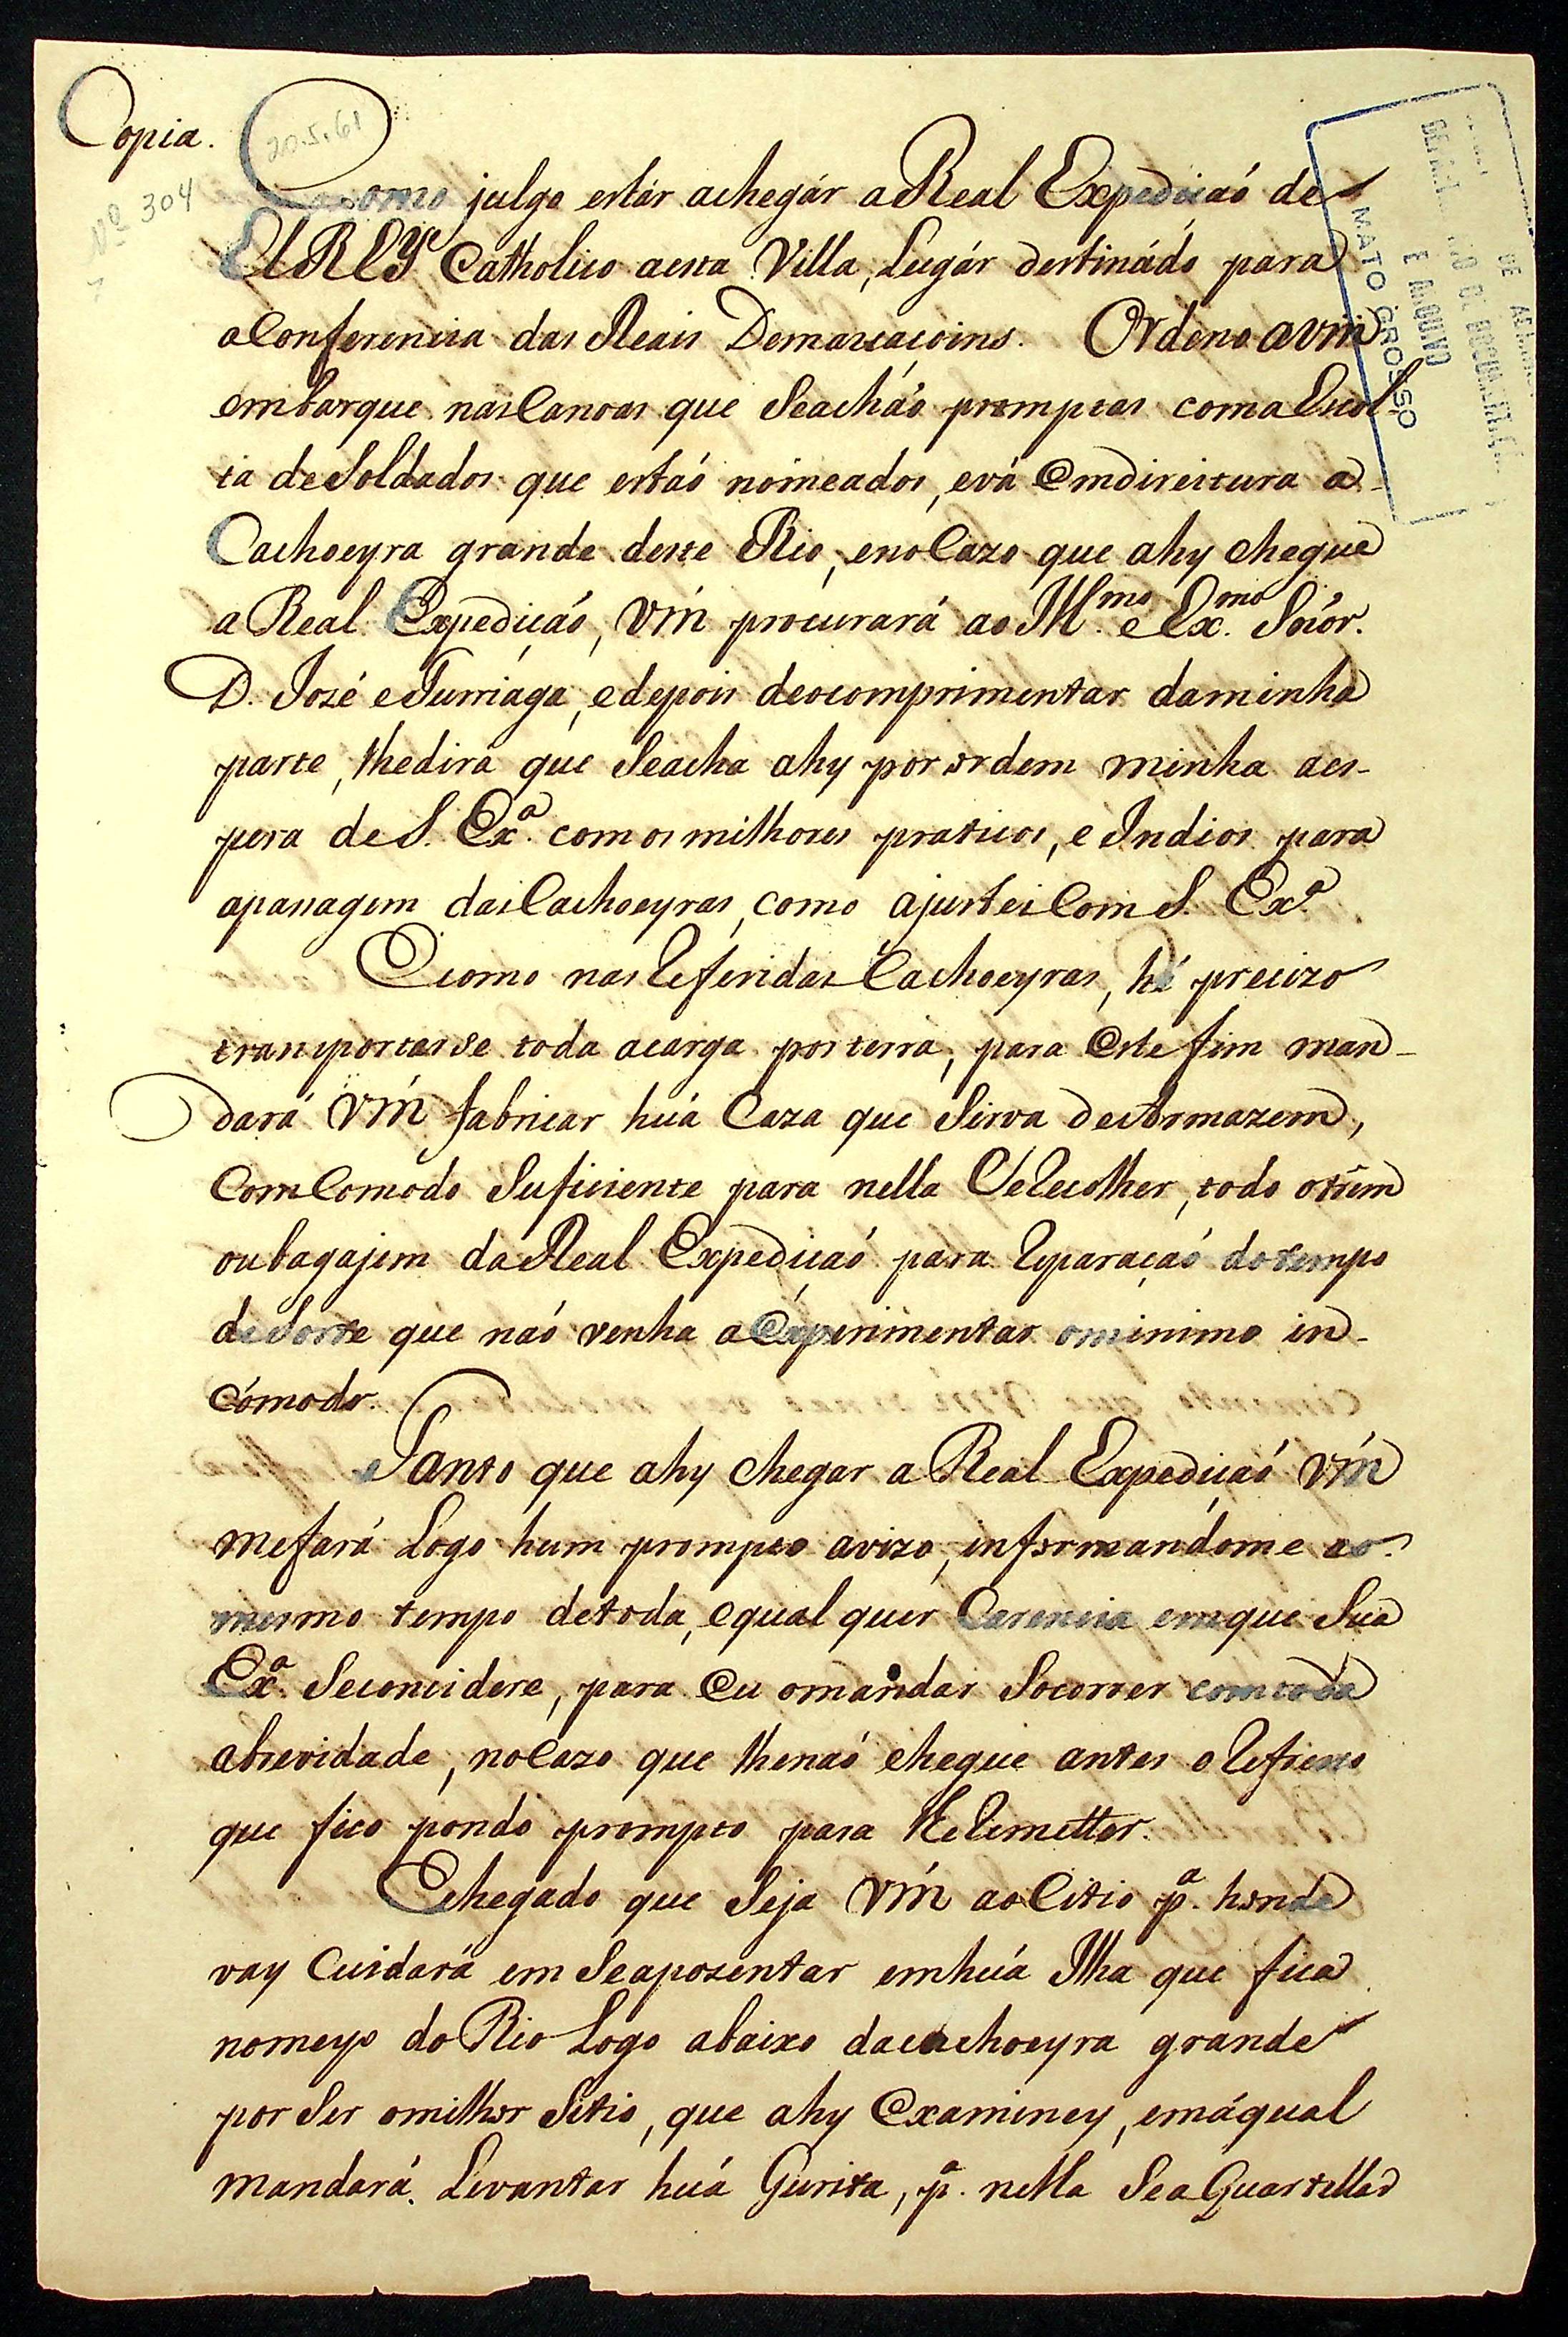 Copia.
20.5.61
Nº 304
Como julgo estár achegár aReal Expediçaó de
ElREY Catholico aesta Villa, Lugár destinádo para
aConferencia das Reais Demarcaçoins. Ordeno avm̃
embarque nasCanoas que Seacháo promptas comaEscol
ta deSoldados que estaó nomeados, evá Emdireitura a
Cachoeyra grande deste Rio, enoCazo que ahy chegue
a Real Expediçaó, Vm̃ procurará ao Ill.mo e Ex.mo Snór.
D. José eTurriága, edepois deocomprimentar daminha
parte, lhedirá que Seacha ahy porordem minha aes-
pera deS. Ex.a comosmilhores praticos, e Indios para
apassagem dasCachoeyras, como ajusteiComS. Ex.a
Ecomo nasReferidasCachoeyras, hé precizo
transportarse toda acarga porterra, para Este fim man-
dará Vm̃ fabricar huá Caza que Sirva deArmazem,
ComComodo Suficiente para nella SeRecolher, todo otrem
oubagajem daReal Expediçaó para Reparaçaó dotempo
deSorte que naó venha aExperimentar ominimo in-
cómodo.
Tanto que ahy chegar a Real Expediçaó Vm̃
mefará Logo hum prompto avizo, informandome ao
mesmo tempo detoda, equal quer Carencia emque Sua
Ex.a Seconcidere, para Eu omandar Socorrer comtoda
abrevidade, noCazo que lhenaó chegue antes oRefresco
que fico pondo prompto para lheRemetter.
Echegado que Seja Vm̃ aoCitio p.a honde
vay Cuidará em Seaposentar emhuá Ilha que fica
nomeyo doRio Logo abaixo dacachoeyra grande
por Ser omilhor Sitio, que ahy Examiney, emáqual
mandará Levantar huá Gurita, p.a nella SeaQuartellar
DE
E ARQUIVO
MATO GROSSO